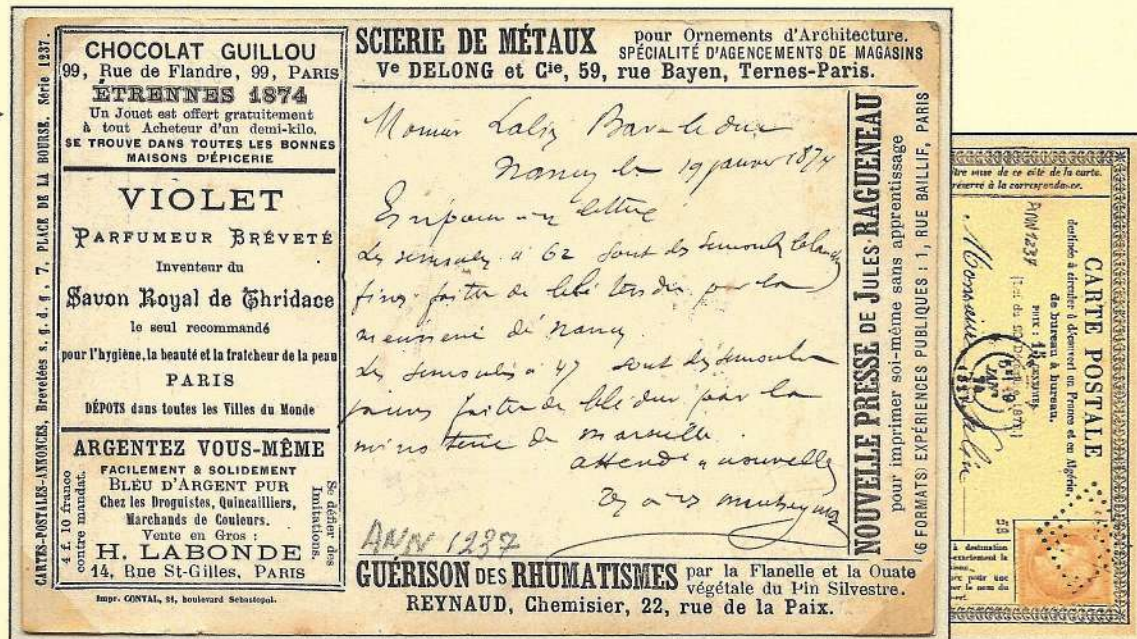 CARTES-POSTALES-ANNONCES, Brevetées s. g. d. g., 7, PLACE DE LA BOURSE. Série 1237.
CHOCOLAT GUILLOU
99, Rue de Flandre, 99, PARIS
ÉTRENNES 1874
Un Jouet est offert gratuitement
à tout Acheteur d'un demi-kilo.
SE TROUVE DANS TOUTES LES BONNES
MAISONS D'ÉPICERIE
VIOLET
PARFUMEUR BRÉVETÉ
Inventeur du
Savon Royal de Thridace
le seul recommandé
pour l'hygiène, la beauté et la fraîcheur de la peau
PARIS
DÉPOTS dans toutes les Villes du Monde
ARGENTEZ VOUS-MÊME
FACILEMENT & SOLIDEMENT
BLEU D'ARGENT PUR
Chez les Droguistes, Quincailliers,
Marchands de Couleurs.
Vente en Gros :
H. LABONDE
14, Rue St-Gilles, PARIS
4 f. 10 franco
contre mandat.
Se défier des
Imitations.
Impr. CONTAL, boulevard Sebastopol.
SCIERIE DE MÉTAUX
pour Ornements d'Architecture.
SPÉCIALITÉ D'AGENCEMENTS DE MAGASINS
Ve DELONG et Cie, 59, rue Bayen, Ternes-Paris.
Bar-le-duc
Nancy le 19 janvier 1874
En réponse lettre
Les semoules à 62 sont des semoules blanches
fines faites de blé tendre par la
meunerie de Nancy
Les semoules à 47 sont des semoules
jaunes faites de blé dur par la
minoterie de Marseille.
attends nouvelles
ANN 1237
NOUVELLE PRESSE DE JULES RAGUENEAU
pour imprimer soi-même sans apprentissage
(6 FORMATS) EXPERIENCES PUBLIQUES : 1, RUE BAILLIF, PARIS
GUÉRISON DES RHUMATISMES
par la Flanelle et la Ouate
végétale du Pin Silvestre.
REYNAUD, Chemisier, 22, rue de la Paix.
mise de ce côté de la carte.
réservé à la correspondance.
CARTE POSTALE
destinée à circuler à découvert en France et en Algérie,
de bureau à bureau.
PRIX : 15 CENTIMES
ANN 1237
Monsieur
59
à destination
exactement la
pour une
le nom du